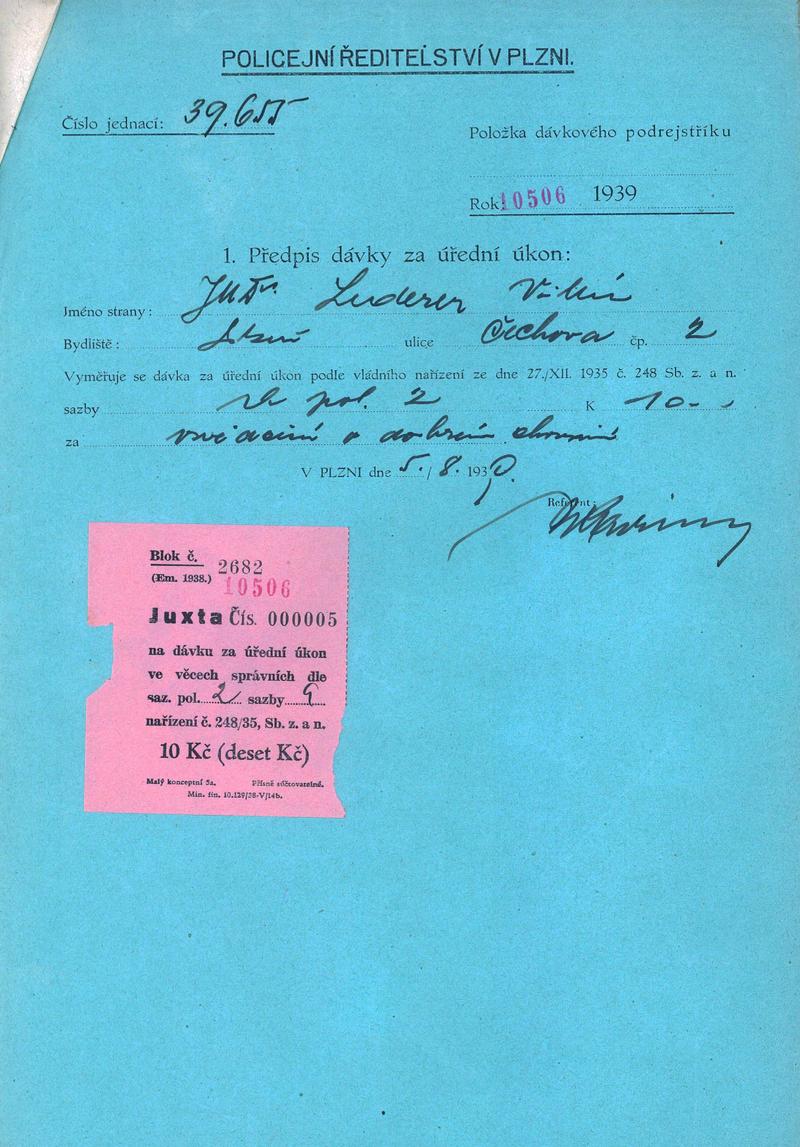 POLICEJNÍ ŘEDITELSTVÍ V PLZNI.
Číslo jednací: 39.655
Položka dávkového podrejstříku
Rok: 10506 1939
1. Předpis dávky za úřední úkon:
Jméno strany: JUDr. Luderer Vilém
Bydliště: Plzeň ulice Čechova čp. 2
Vyměřuje se dávka za úřední úkon podle vládního nařízení ze dne 27./XII. 1935 č. 248 Sb. z. a n.
sazby pol. 2 K 10.-
za vysvědčení o dobrém chování
V PLZNI dne 5./8. 1939.
Referent:
Blok č. 2682
(Em. 1938.) 10506
Juxta Čís. 000005
na dávku za úřední úkon
ve věcech správních dle
saz. pol. 2 sazby
nařízení č. 248/35, Sb. z. a n.
10 Kč (deset Kč)
Malý konceptní 5a. Přísně zúčtovatelné.
Min. fin. 10.129/38-V/14b.